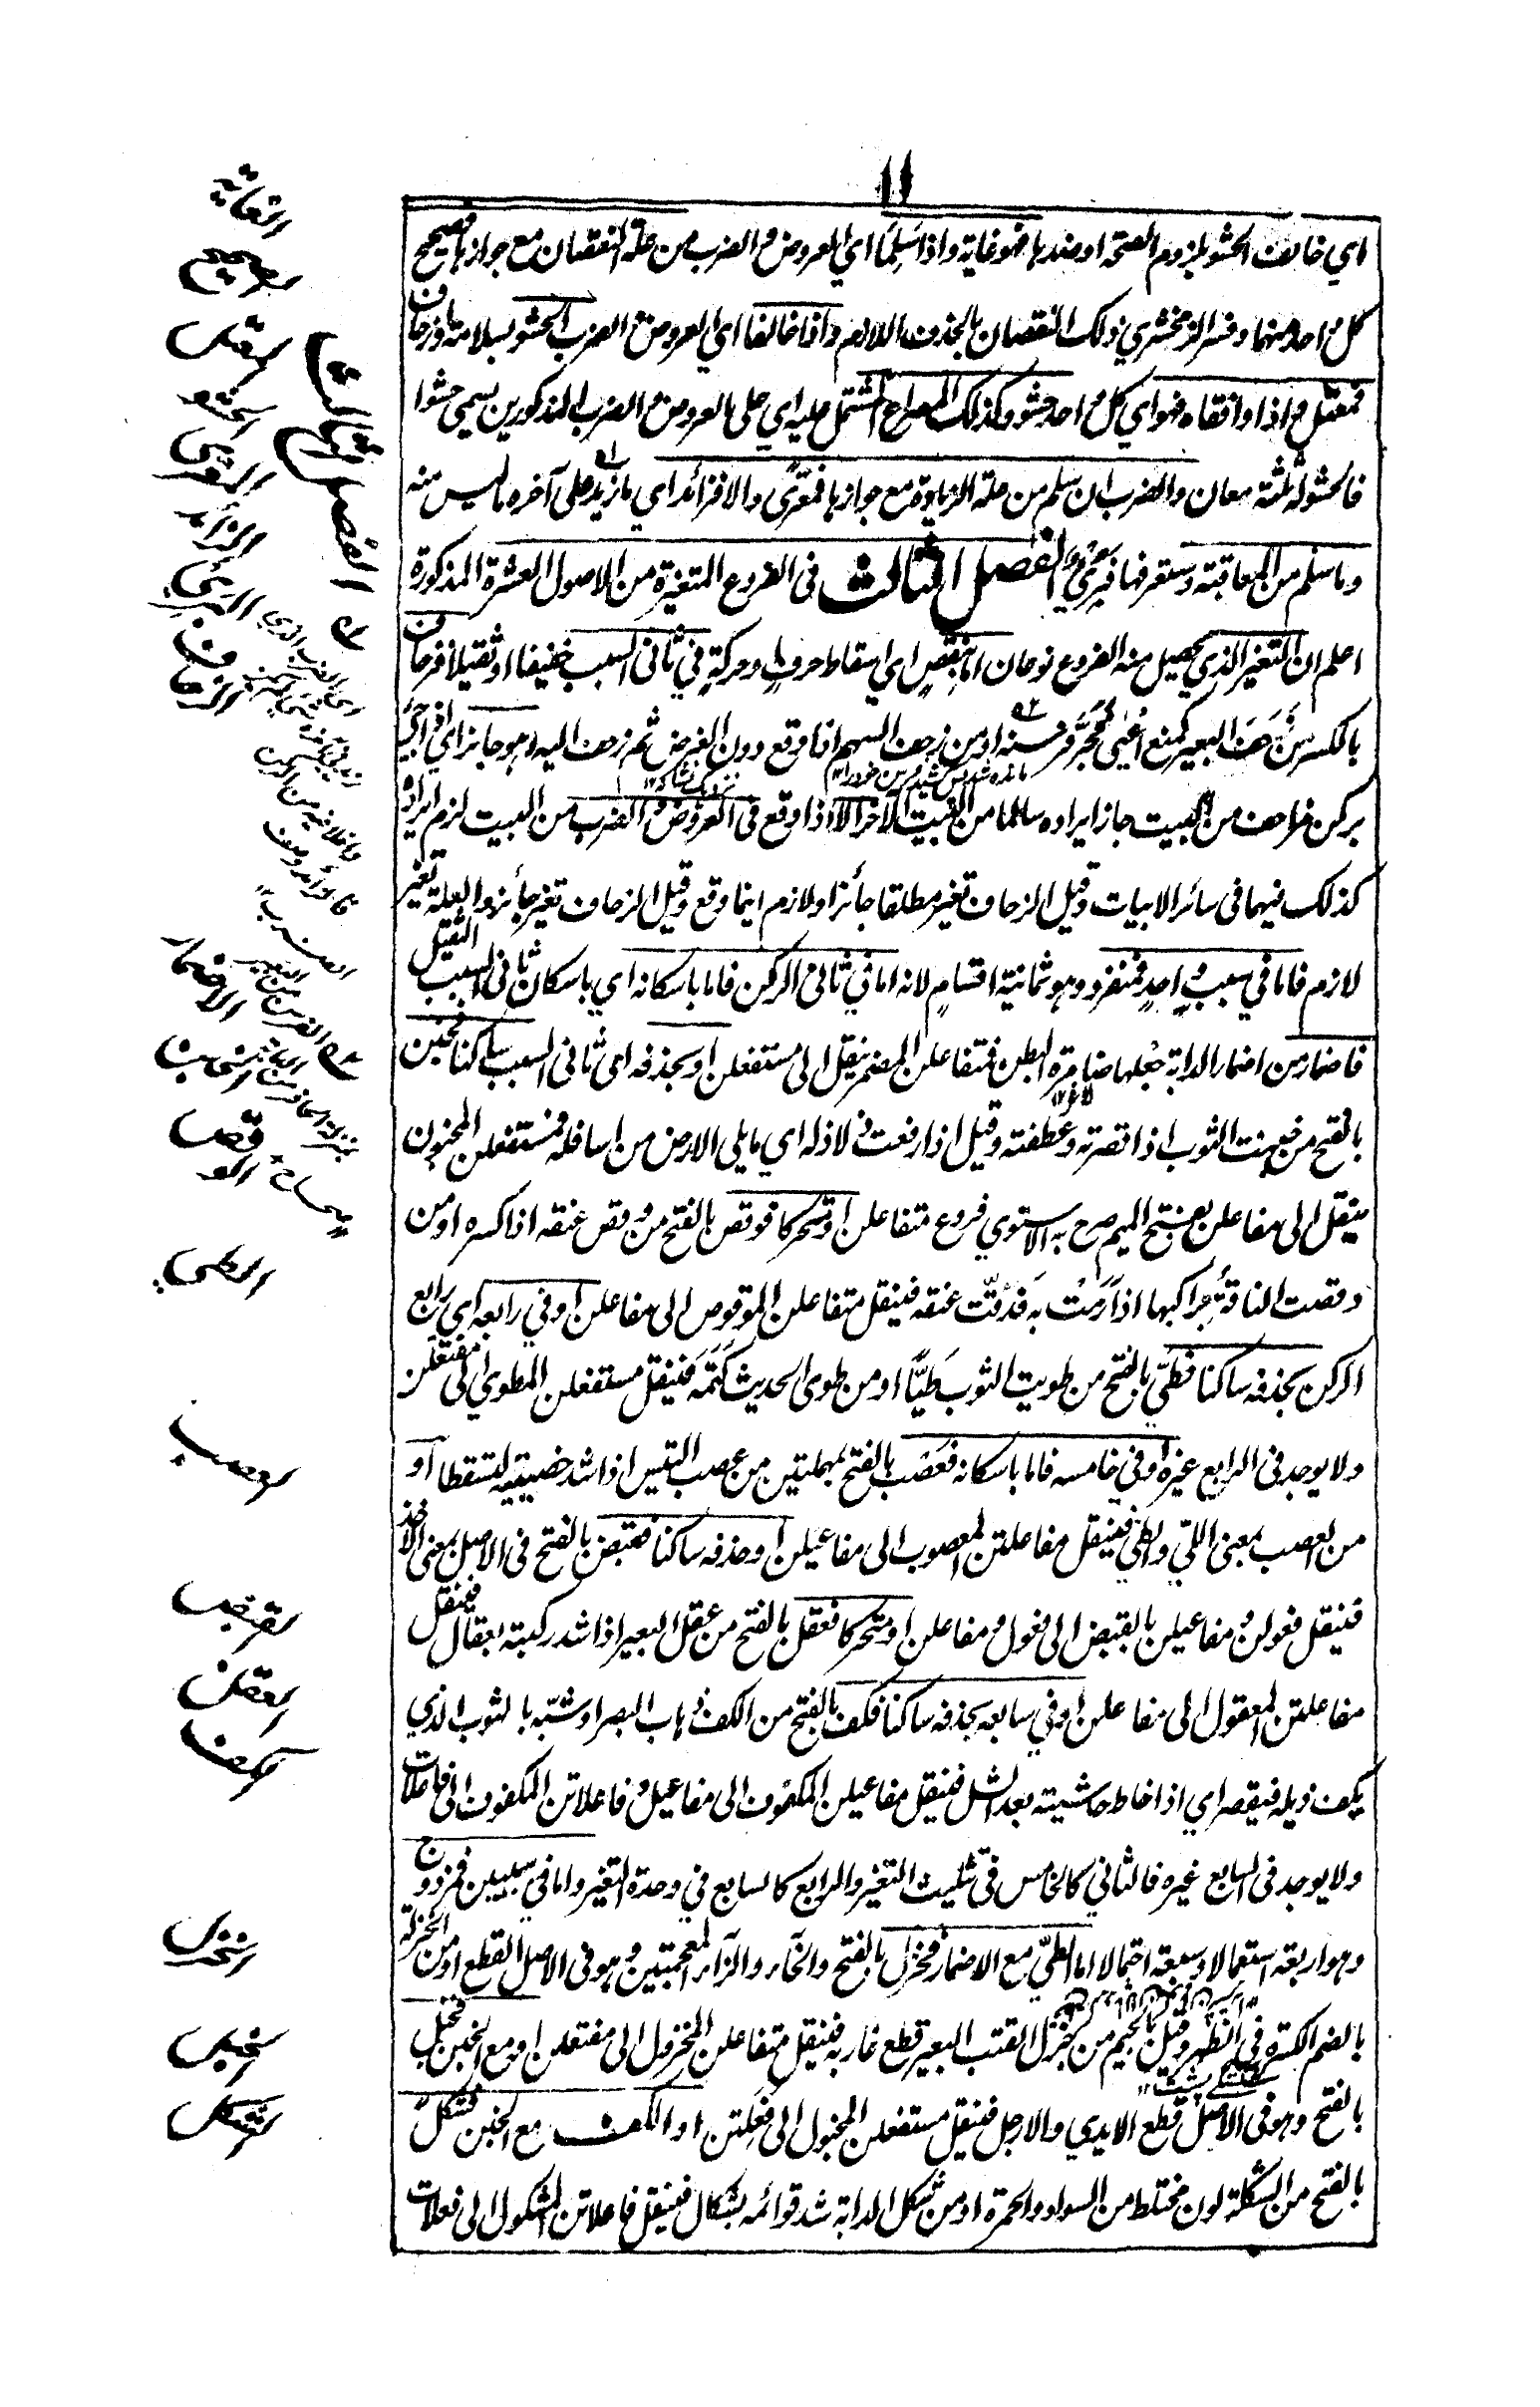 ١١
اي خالف الحشو بلزوم الصحة او ضدها فهو غاية واذا سَلِمَا اي العروض والضرب من علة النقصان مع جوازها فصحيح
كل واحد منهما وفسر الزمخشري ذلك النقصان بالحذف اللازم واذا خالفا اي العروض والضرب الحشو بسلامته او زحاف
فمعتل واذا وافقاه فهو اي كل واحد حشو وكذلك المصراع المشتمل عليه اي على العروض والضرب المذكورين يسمى حشوا
فالحشو له ثلثة معان والضرب ان سلم من علة الزيادة مع جوازها فمعرًّى والا فزائد اي ما زيد على آخره ما ليس منه
وما سلم من المعاقبة وستعرفها فبري الفصل الثالث فى الفروع المتغيرة من الاصول العشرة المذكورة
اعلم ان التغير الذي يحصل منه الفروع نوعان اما بنقصٍ اي اسقاط حرفٍ او حركةٍ في ثانى السبب خفيفا او ثقيلا فزحاف
بالكسر من زَحَفَ البعير كمنع اَعْيٰى فجَرَّ فرسنه او من زحف السهم اذا وقع دون الغرض ثم زحف اليه وهو جائز اي اذا جئ
بركن مزاحف من البيت جاز ايراده سالما من البيت الآخر الا اذا وقع فى العروض والضرب من البيت لزم ايراده
كذلك فيهما فى سائر الابيات وقيل الزحاف تغير مطلقا جائزا ولازم اينما وقع وقيل الزحاف تغير جائز والعلة تغير
لازم فاما في سبب واحدٍ فمنفرد وهو ثمانية اقسام لانه اما في ثانى الركن فاما باسكانه اي باسكان ثانى السبب الثقيل
فاضمار من اضمار الدابة جعلها ضامرة البطن فمتفاعلن المضمر ينقل الى مستفعلن او بحذفه اى ثانى السبب ساكنا فخبن
بالفتح من خبنت الثوب اذا قصرته وعطفته وقيل اذا رفعت ذلاذله اي ما يلى الارض من اسافله فمستفعلن المخبون
ينقل الى مفاعلن بفتح الميم صرح به الاستوي فروع متفاعلن او متحركا فوقص بالفتح من وقص عنقه اذا كسره او من
وقصت الناقةُ براكبها اذا رَمَت به فدُقّت عنقه فينقل متفاعلن الموقوص الى مفاعلن او في رابعه اي رابع
الركن بحذفه ساكنا فطيّ بالفتح من طويت الثوب طَيًّا او من طوى الحديث كَتَمَه فينقل مستفعلن المطوي الى مفتعلن
ولا يوجد فى الرابع غيره او في خامسه فاما باسكانه فعَصْب بالفتح بمهملتين من عصب التيس اذا شد خصيتيه لتسقطا او
من العصب بمعنى اللّي والطي فينقل مفاعلتن المعصوب الى مفاعيلن او حذفه ساكنا فقبض بالفتح فى الاصل بمعنى الاخذ
فينقل فعولن و مفاعيلن بالقبض الى فعول و مفاعلن او متحركا فعقل بالفتح من عقل البعير اذا شد ركبته بعقال فينقل
مفاعلتن المعقول الى مفاعلن او في سابعه بحذفه ساكنا فكف بالفتح من الكف ذهاب البصر او شبّه بالثوب الذي
يكف ذيله فيقصر اي اذا خاط حاشيته بعد الشل فينقل مفاعيلن المكفوف الى مفاعيل وفاعلاتن المكفوف الى فاعلات
ولا يوجد فى السابع غيره فالثاني كالخامس فى تثليث التغير والرابع كالسابع في وحدة التغير واما في سببين فمزدوج
وهو اربعة استعمالا وسبعة احتمالا اما الطيّ مع الاضمار فخزل بالفتح والخاء والزاء المعجمتين وهو فى الاصل القطع او من الخزلة
بالضم الكسرة في الظهر وقيل بالجيم من جزل القتب البعير قطع غاربه فينقل متفاعلن المخزول الى مفتعلن او مع الخبن فخبل
بالفتح وهو فى الاصل قطع الايدي والارجل فينقل مستفعلن المخبول الى فَعِلَتن او الكف مع الخبن فشكل
بالفتح من الشكلة لون مختلط من السواد والحمرة او من شكل الدابة شد قوائمه بشكال فينقل فاعلاتن المشكول الى فعلات
الغاية
الصحيح
المعتل
الحشو
المعرى
الزائد
البرئ
الفصل الثالث
الزحاف
الاضمار
الخبن
الوقص
الطي
العصب
القبض
العقل
الكف
الخزل
الخبل
الشكل